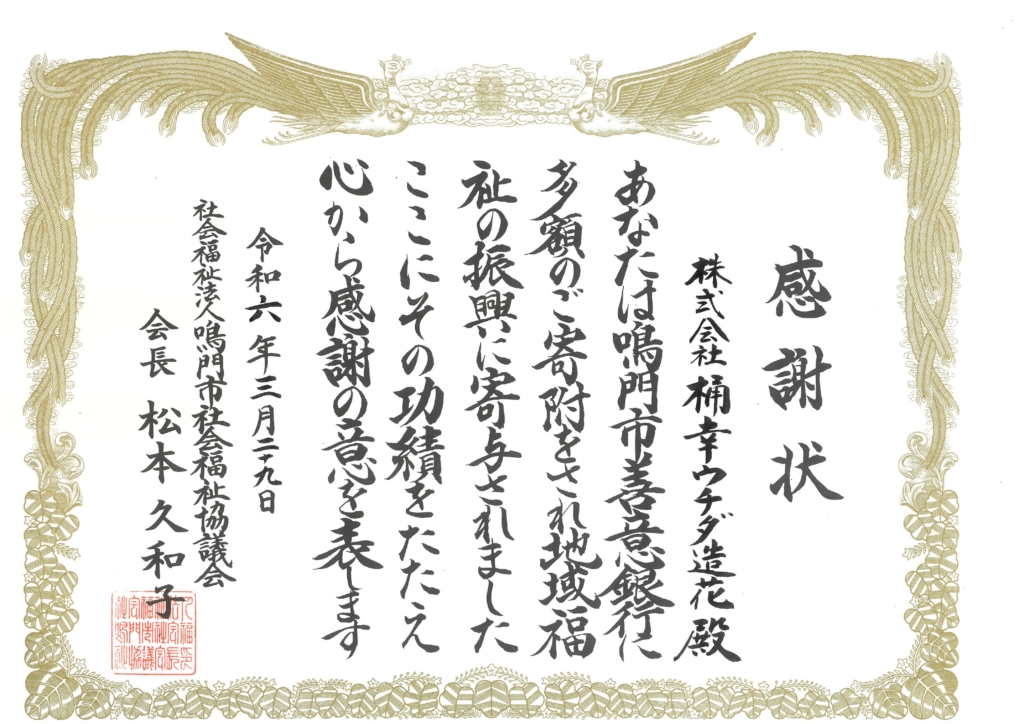 感謝状
株式会社桶幸ウチダ造花殿
あなたは鳴門市善意銀行に
多額のご寄附をされ地域福
祉の振興に寄与されました
ここにその功績をたたえ
心から感謝の意を表します
令和六年三月二十九日
社会福祉法人鳴門市社会福祉協議会
会長 松本久和子